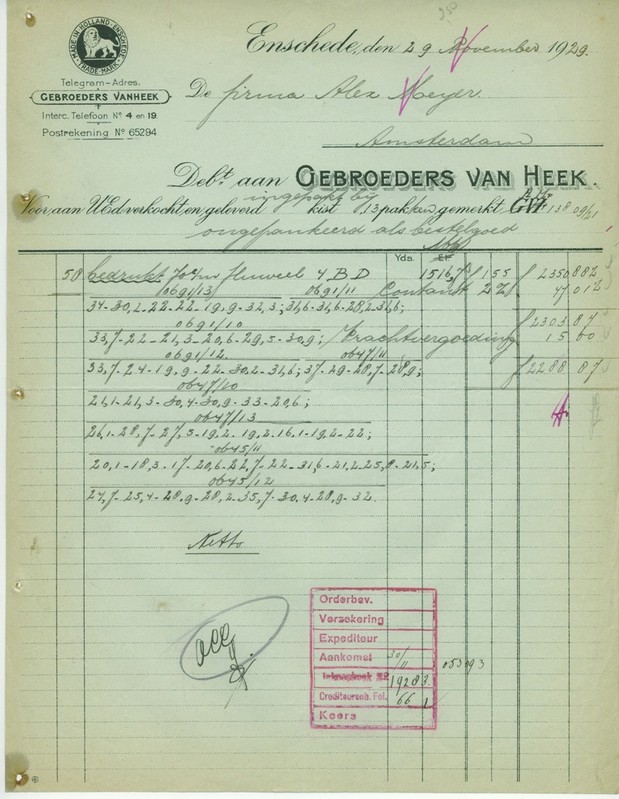 Enschede, den 29 November 1929.
MADE IN HOLLAND - ENSCHEDE
TRADE-MARK
Telegram-Adres.
GEBROEDERS VANHEEK
Interc. Telefoon No 4 en 19.
Postrekening No 65294
De firma Alex Meyer.
Amsterdam
Debt. aan GEBROEDERS VAN HEEK.
ingepakt bij
Voor aan UEd verkocht en geleverd kist 13 pakken gemerkt
ongepankeerd als bestelgoed
Yds.
58 bedrukt fluweel 4 B D 1516 f 1 55 f 2350 88
0691/13 0691/11 Contant 2% 47 01
34-30,2-22-22-19,9-32,3; 31,6-31,6-28,2-31,6;
0691/10 f 2303 87
33,7-22-21,3-20,6-29,5-30,9; Vrachtvergoeding 15 00
0691/12 0647/11
33,7-24-19,9-22-30,2-31,6; 37-29-28,7-28,9; f 2288 87
0647/10
21,1-21,3-30,4-30,9-33-20,6;
0647/13
26,1-28,7-27,3-19,2-19,2-16,1-19,2-22;
0645/11
20,1-18,3-17-20,6-22,7-22-31,6-21,2-25,8-21,5;
0645/12
24,7-25,4-28,9-28,2-35,7-30,4-28,9-32.
Netto
acc
Orderbev.
Verzekering
Expediteur
Aankomst 30/11
19283
Crediteurenb. Fol. 66 1
Koers